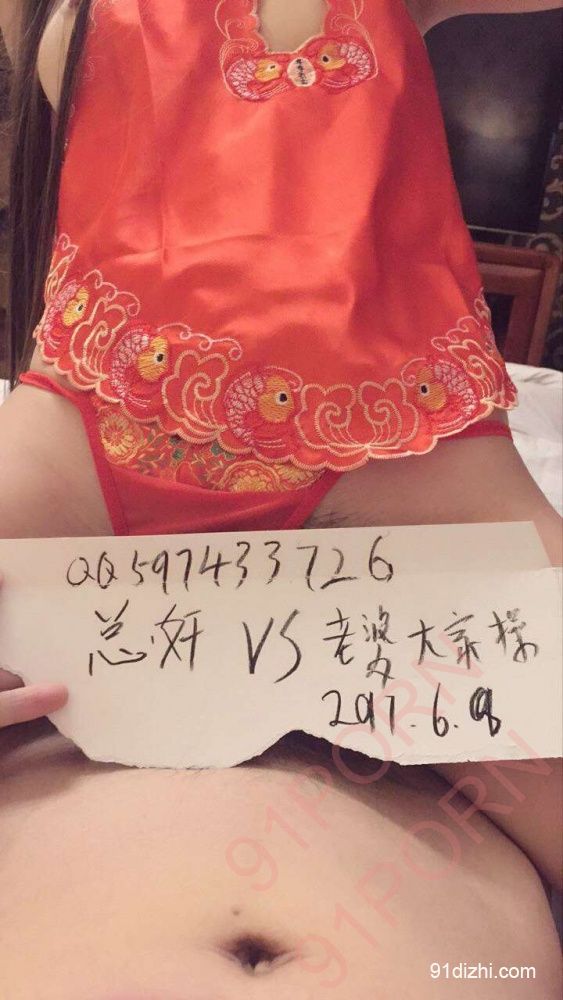 QQ597433726
总奸 VS 老婆大家操
2017.6.8
91PORN
91PORN
91dizhi.com